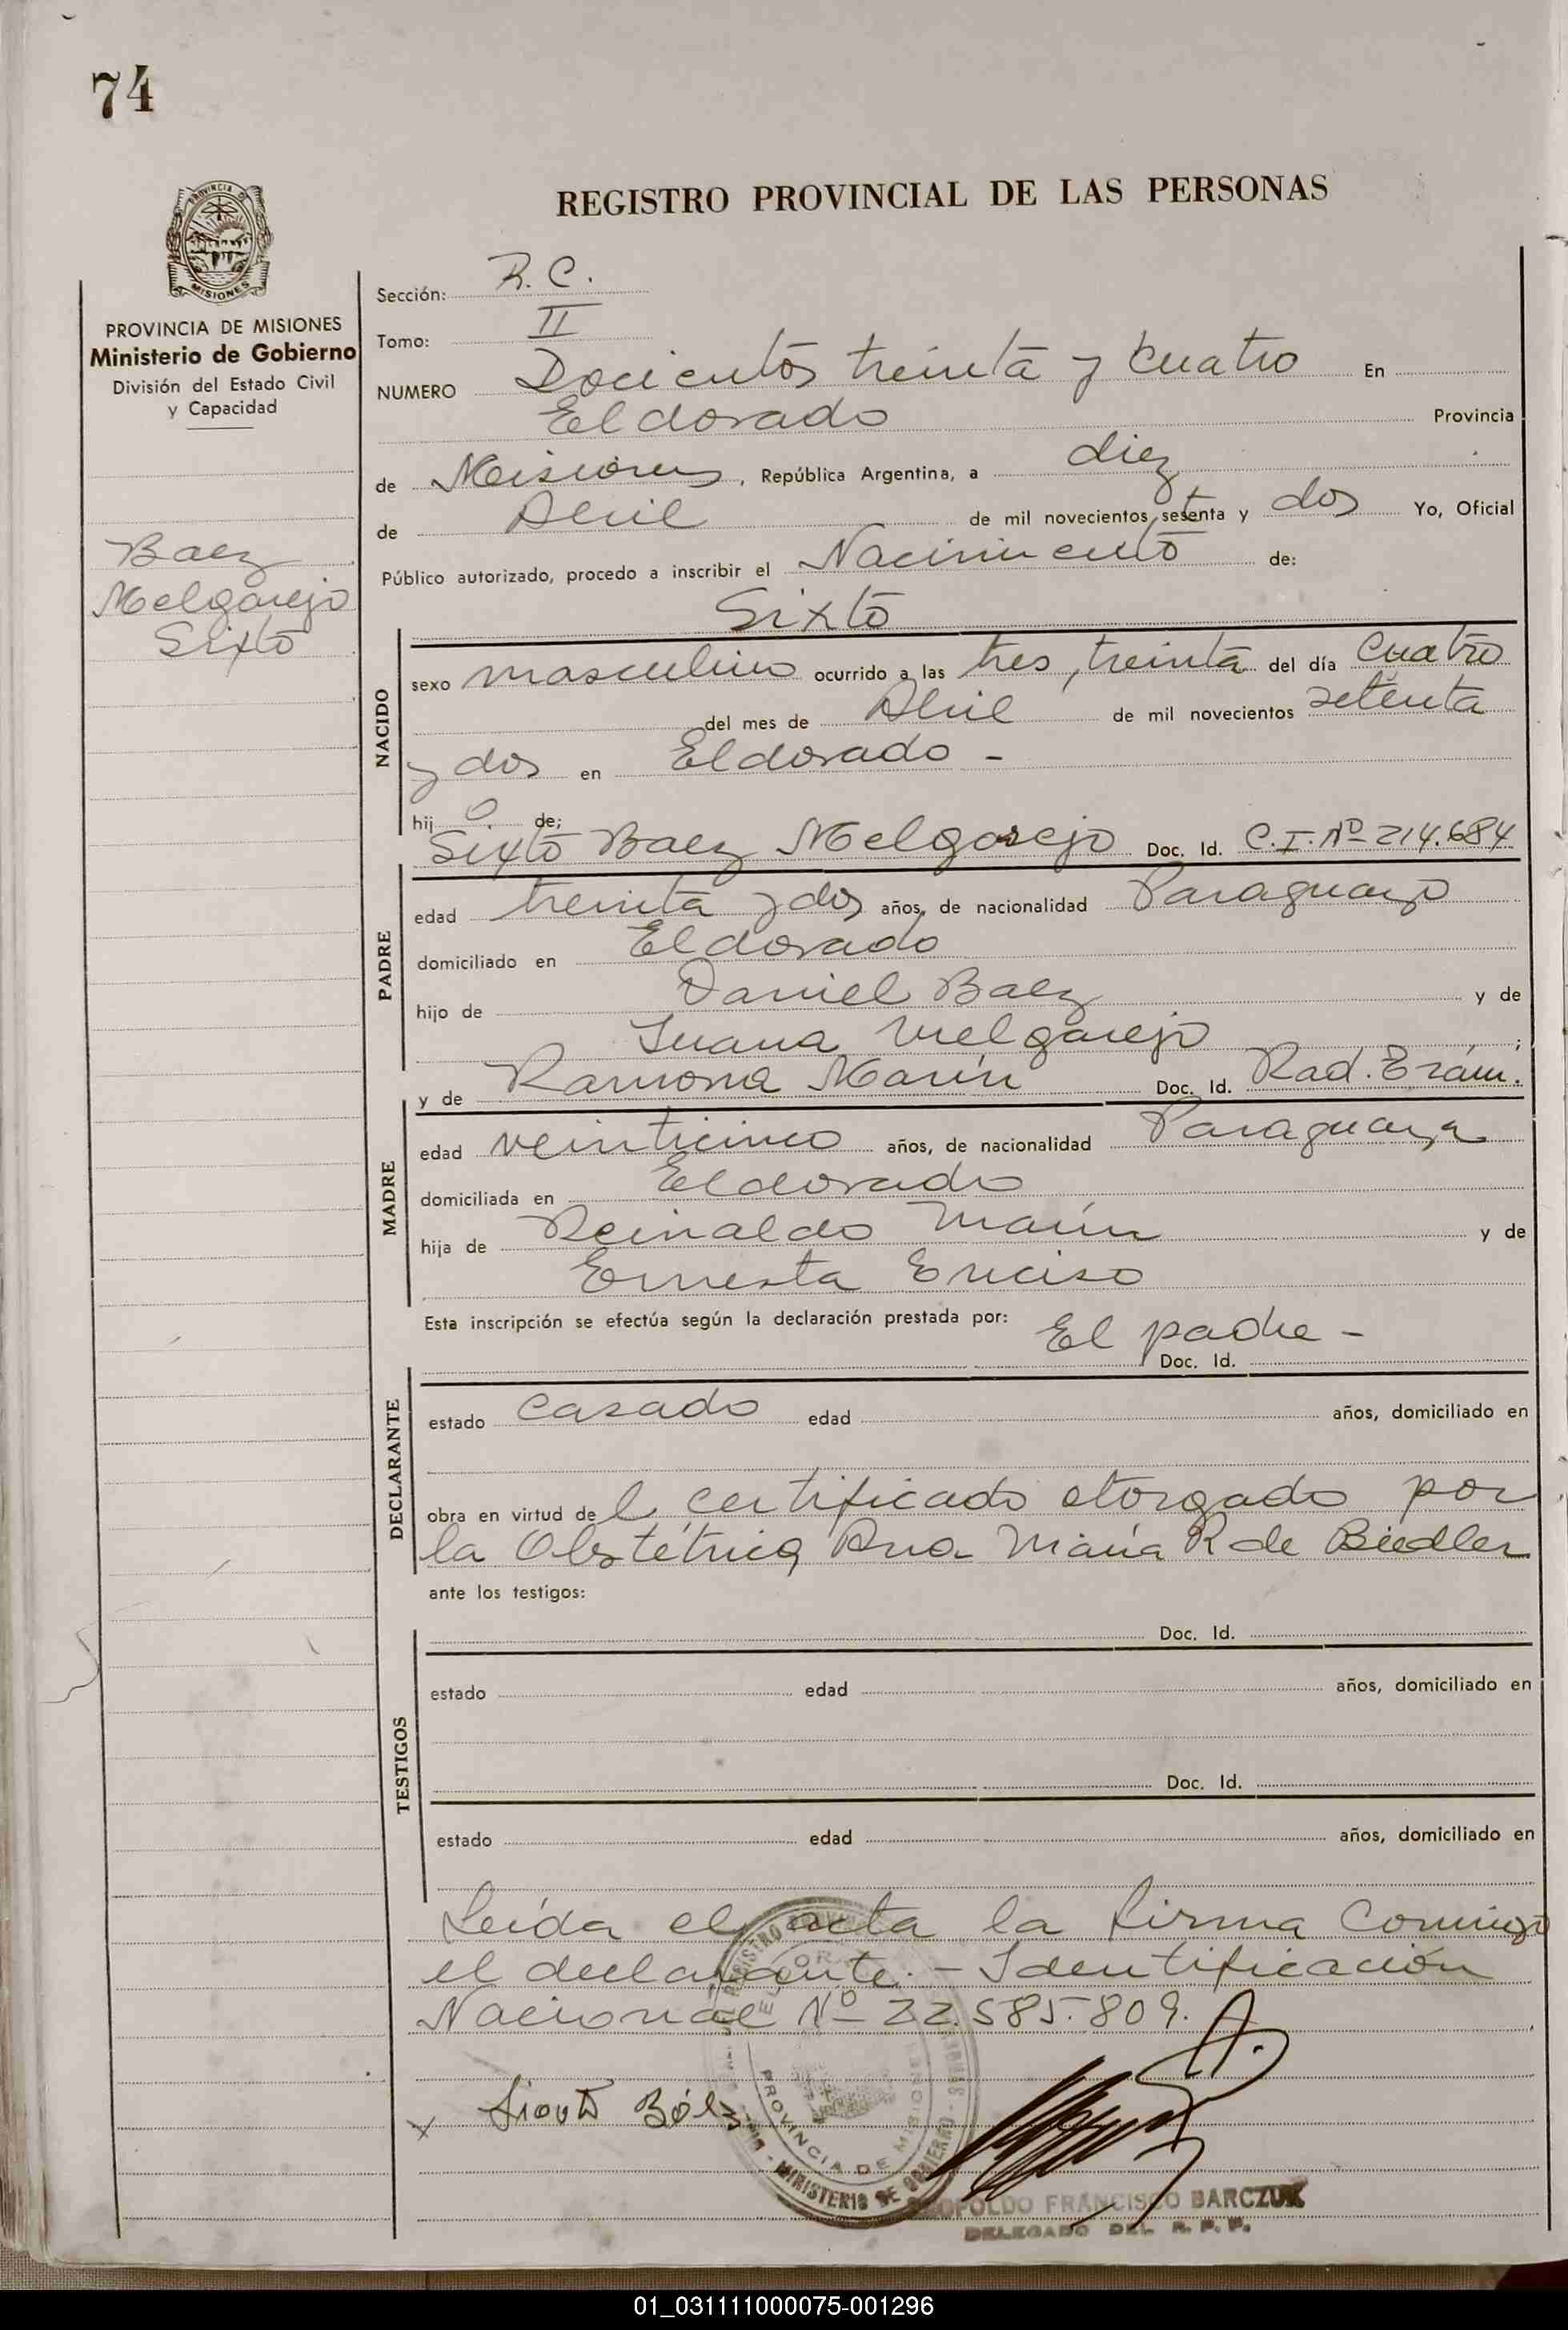 74
REGISTRO PROVINCIAL DE LAS PERSONAS
PROVINCIA DE MISIONES
PROVINCIA DE MISIONES
Ministerio de Gobierno
División del Estado Civil
y Capacidad
Baez
Melgarejo
Sixto
Sección: R. C.
Tomo: II
NUMERO Docientos treinta y cuatro En
Eldorado Provincia
de Misiones, República Argentina, a diez
de Abril de mil novecientos setenta y dos Yo, Oficial
Público autorizado, procedo a inscribir el Nacimiento de:
Sixto
NACIDO
sexo masculino ocurrido a las tres, treinta del día cuatro
del mes de Abril de mil novecientos setenta
y dos en Eldorado -
hij o de:
Sixto Baez Melgarejo Doc. Id. C.I. Nº 214.684
PADRE
edad treinta y dos años, de nacionalidad Paraguayo
domiciliado en Eldorado
hijo de Daniel Baez y de
Juana Melgarejo ;
y de Ramona Marín Doc. Id. Rad.
MADRE
edad veinticinco años, de nacionalidad Paraguaya
domiciliada en Eldorado
hija de Reinaldo Marín y de
Ernesta Enciso
Esta inscripción se efectúa según la declaración prestada por: El padre -
Doc. Id.
DECLARANTE
estado casado edad años, domiciliado en
obra en virtud de l certificado otorgado por
la Obstétrica Ana María R de Biedler
ante los testigos:
TESTIGOS
Doc. Id.
estado edad años, domiciliado en
Doc. Id.
estado edad años, domiciliado en
Leída el acta la firma conmigo
el declarante. - Identificación
Nacional Nº 22.585.809.
x Baez
PROVINCIA DE MISIONES
MINISTERIO DE GOBIERNO
LEOPOLDO FRANCISCO BARCZUK
DELEGADO DEL R. P. P.
01_031111000075-001296